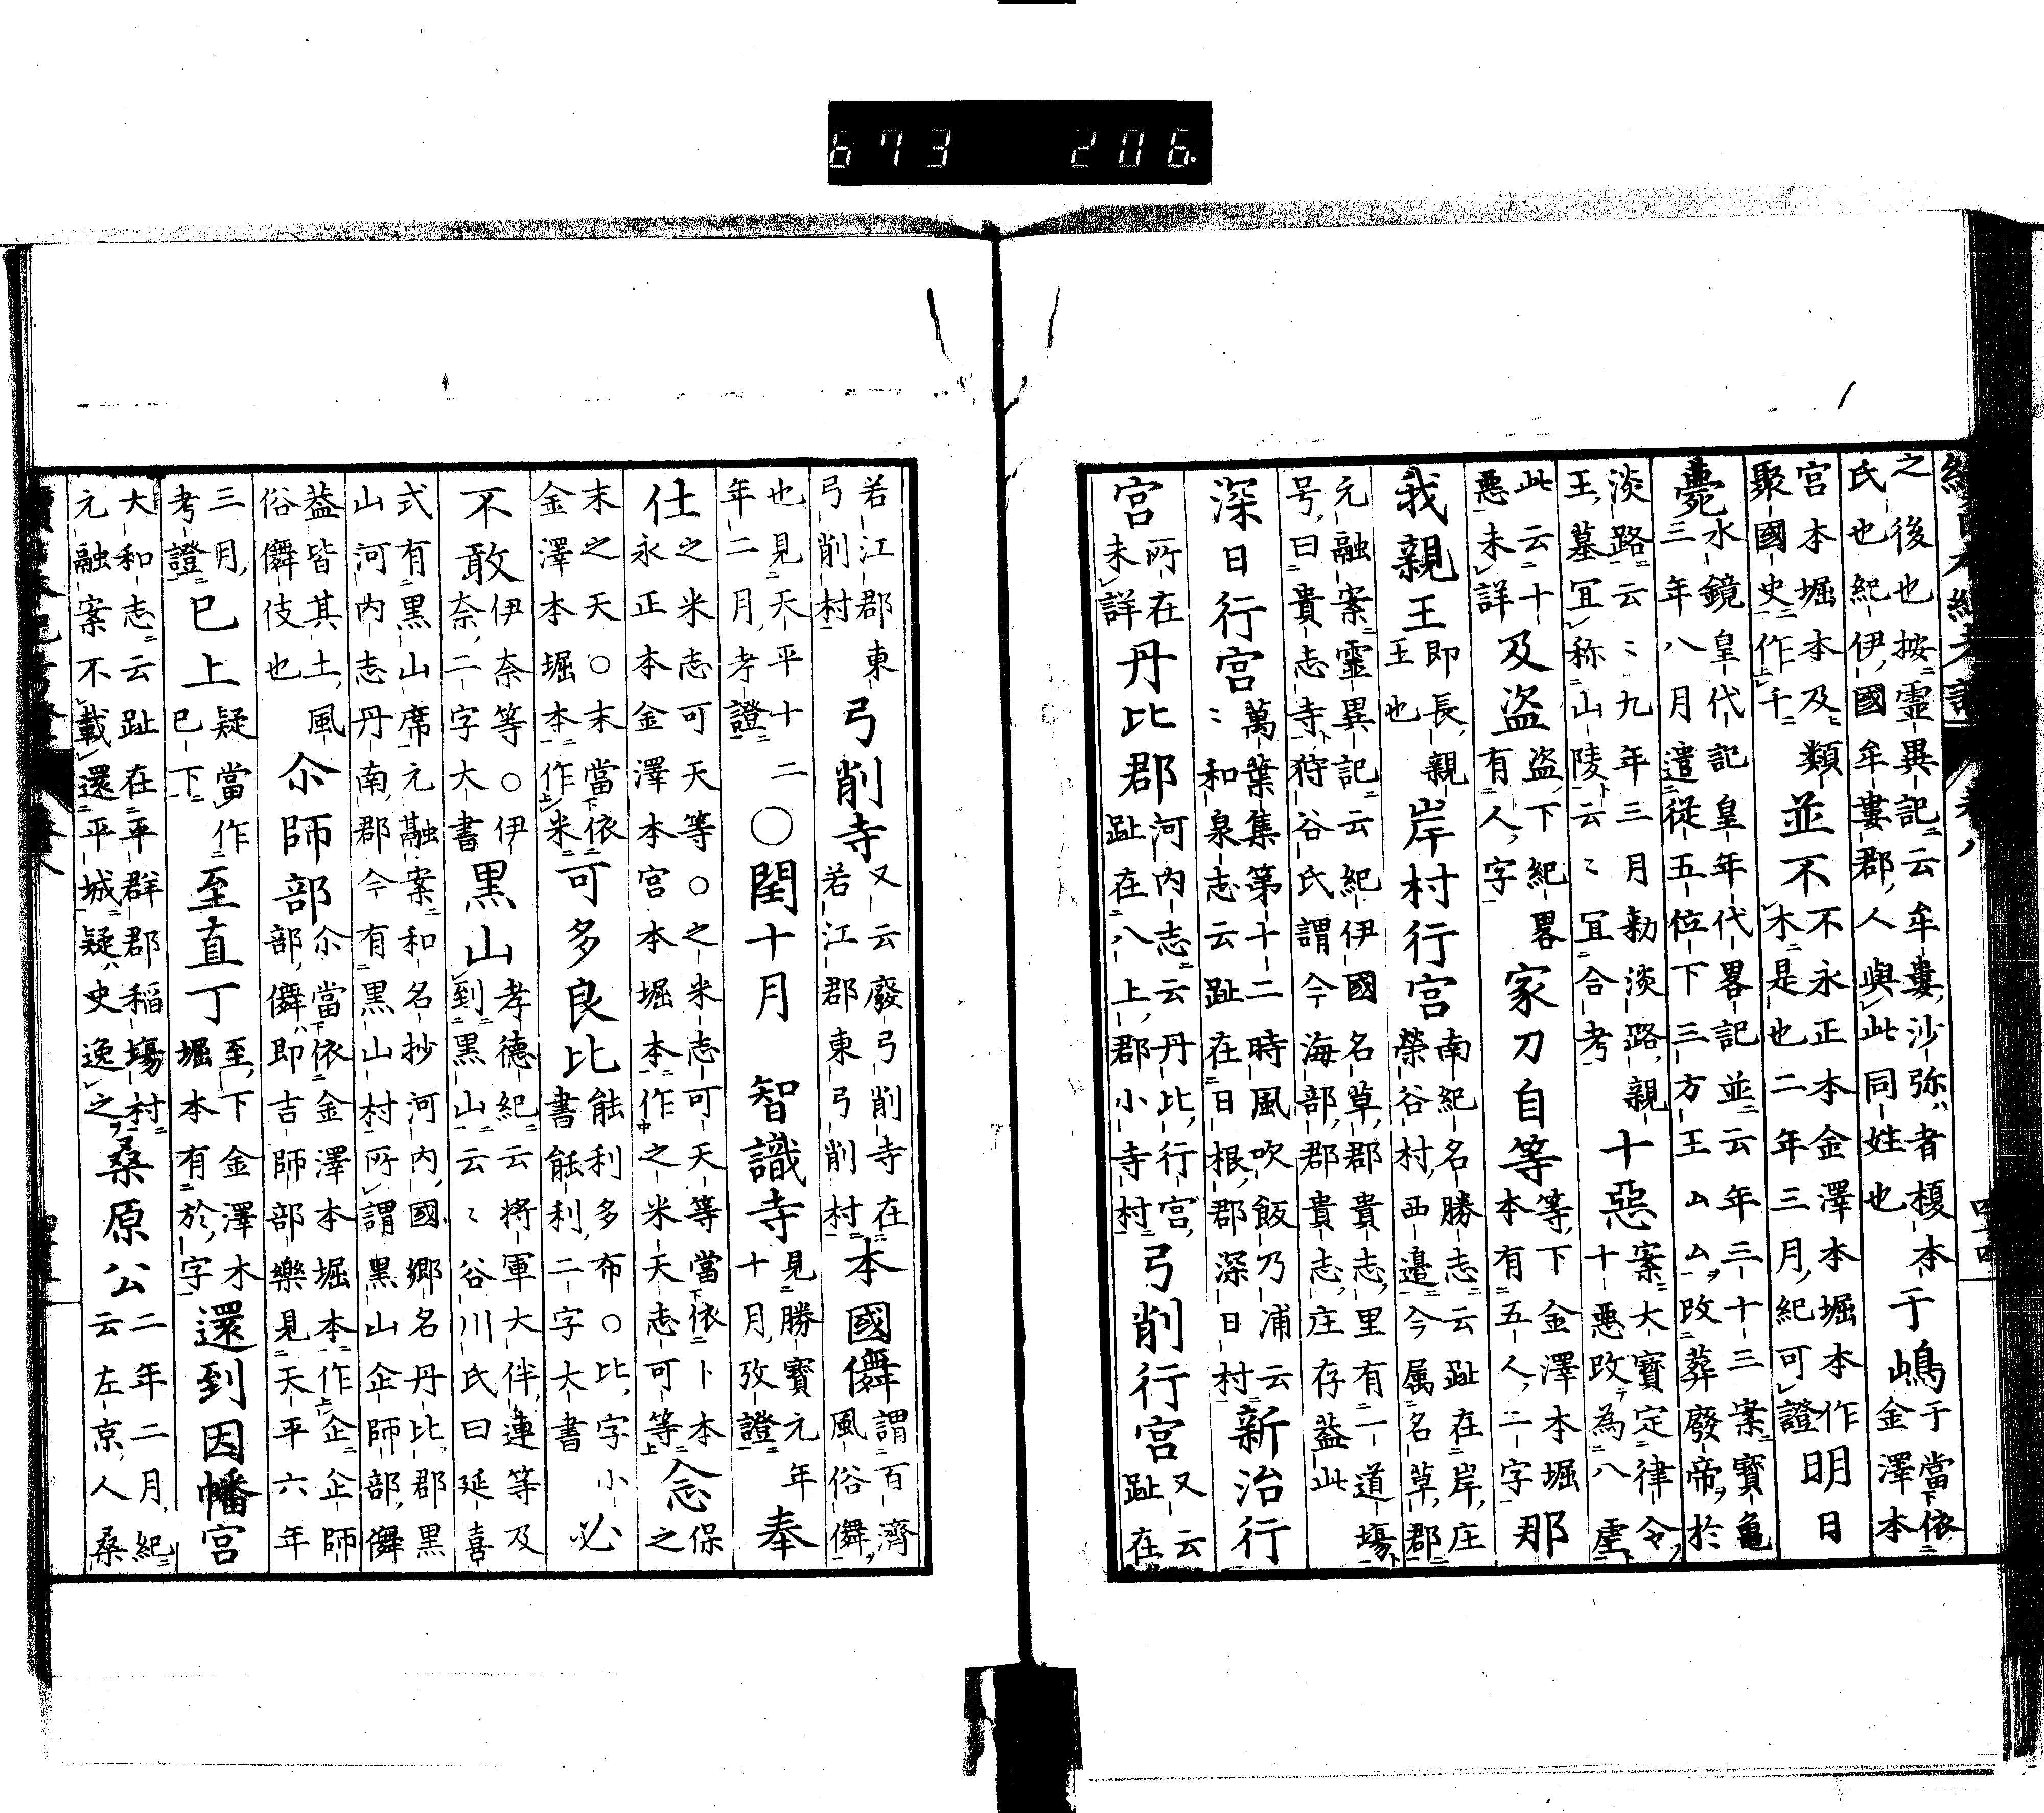 673 206.
之後也按靈異記云牟婁沙弥者榎本
氏也紀伊國牟婁郡人與此同姓也
于嶋
于當依
金澤本
宮本堀本及類
聚國史作千
並不
不永正本金澤本堀本作
木是也二年三月紀可證
明日
薨
水鏡皇代記皇年代畧記並云年三十三案寶龜
三年八月遣從五位下三方王厶厶改葬廢帝於
淡路云〻九年三月勅淡路親
王墓宜称山陵云〻宜合考
十惡
案大寶定律令
十惡改為八虐
此云十
悪未詳
及盗
盗下紀畧
有人字
家刀自等
等下金澤本堀
本有五人二字
那
我親王
即長親
王也
岸村行宮
南紀名勝志云趾在岸庄
榮谷村西邉今属名草郡
元融案靈異記云紀伊國名草郡貴志里有一道塲
号曰貴志寺狩谷氏謂今海部郡貴志庄存葢此
深日行宮
萬葉集第十二時風吹飯乃浦云
〻和泉志云趾在日根郡深日村
新治行
宮
所在
未詳
丹比郡
河内志云丹比行宮
趾在八上郡小寺村
弓削行宮
又云
趾在
若江郡東
弓削村
弓削寺
又云廢弓削寺在
若江郡東弓削村
本國儛
謂百濟
風俗儛
也見天平十二
年二月考證
〇閏十月
智識寺
見勝寶元年
十月攷證
奉
仕
之米志可天等〇之米志可天等當依卜本
永正本金澤本宮本堀本作之米天志可等
念
保
之
末之天〇末當依
金澤本堀本作米
可多良比
能利多布〇比字小
書能利二字大書
必
不敢
伊奈等〇伊
奈二字大書
黒山
孝德紀云將軍大伴連等及
到黒山云〻谷川氏曰延喜
式有黒山席元融案和名抄河内國郷名丹比郡黒
山河内志丹南郡今有黒山村所謂黒山企師部儛
葢皆其土風
俗儛伎也
尒師部
尒當依金澤本堀本作企企師
部儛即吉師部樂見天平六年
三月
考證
巳上
疑當作
巳下
至直丁
至下金澤本
堀本有於字
還到因幡宮
大和志云趾在平群郡稲塲村
元融案不載還平城疑史逸之
桑原公
二年二月紀
云左京人桑